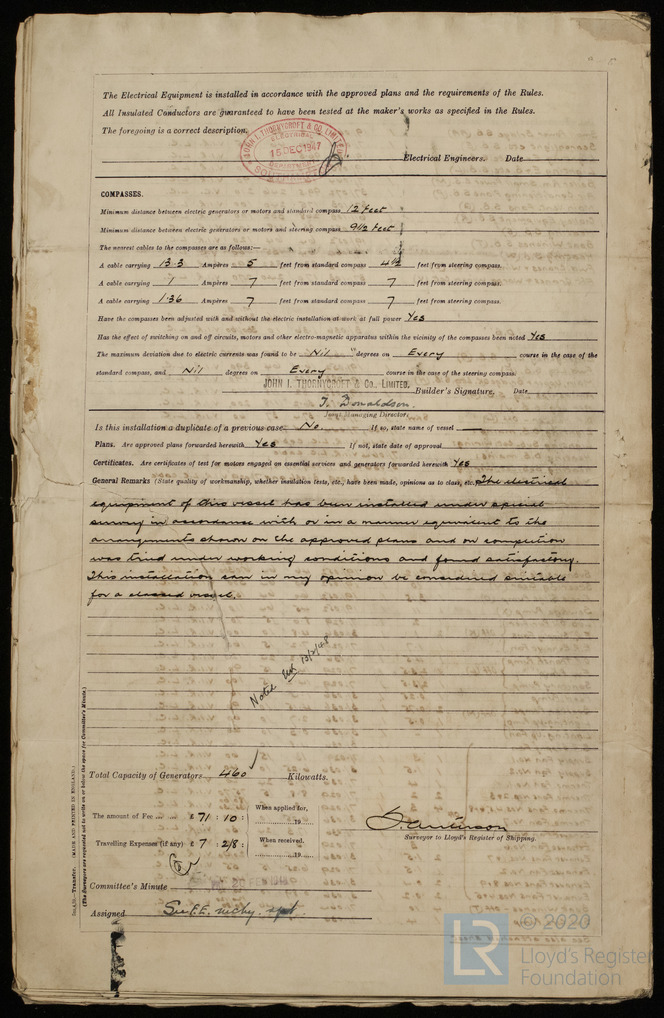 The Electrical Equipment is installed in accordance with the approved plans and the requirements of the Rules.
All Insulated Conductors are guaranteed to have been tested at the maker's works as specified in the Rules.
The foregoing is a correct description.
JOHN I. THORNYCROFT & CO. LIMITED
ELECTRICAL
15 DEC 1947
DEPARTMENT
Electrical Engineers. Date
COMPASSES.
Minimum distance between electric generators or motors and standard compass 12 feet
Minimum distance between electric generators or motors and steering compass 9 1/2 feet
The nearest cables to the compasses are as follows:—
A cable carrying 13.3 Ampères 5 feet from standard compass 4 1/2 feet from steering compass.
A cable carrying 1 Ampères 7 feet from standard compass 7 feet from steering compass.
A cable carrying 1.36 Ampères 7 feet from standard compass 7 feet from steering compass.
Have the compasses been adjusted with and without the electric installation at work at full power Yes
Has the effect of switching on and off circuits, motors and other electro-magnetic apparatus within the vicinity of the compasses been noted Yes
The maximum deviation due to electric currents was found to be Nil degrees on Every course in the case of the
standard compass, and Nil degrees on Every course in the case of the steering compass.
JOHN I. THORNYCROFT & Co., LIMITED. Builder's Signature. Date
T. Donaldson.
Joint Managing Director.
Is this installation a duplicate of a previous case No. If so, state name of vessel
Plans. Are approved plans forwarded herewith Yes If not, state date of approval
Certificates. Are certificates of test for motors engaged on essential services and generators forwarded herewith Yes
General Remarks (State quality of workmanship, whether insulation tests, etc., have been made, opinions as to class, etc. The electrical
equipment of this vessel has been installed under special
survey in accordance with or in a manner equivalent to the
arrangements shown on the approved plans and on completion
was tried under working conditions and found satisfactory.
This installation can in my opinion be considered suitable
for a classed vessel.
Noted 13/2/48
Total Capacity of Generators 460 Kilowatts.
The amount of Fee £ 71 : 10 : When applied for, 19
Travelling Expenses (if any) £ 7 : 2/8 : When received. 19
Surveyor to Lloyd's Register of Shipping.
Committee's Minute
Assigned See F.E. mchy. rpt.
Transfer. (MADE AND PRINTED IN ENGLAND.)
(The Surveyors are requested not to write on or below the space for Committee's Minute.)
© 2020
LR
Lloyd's Register
Foundation